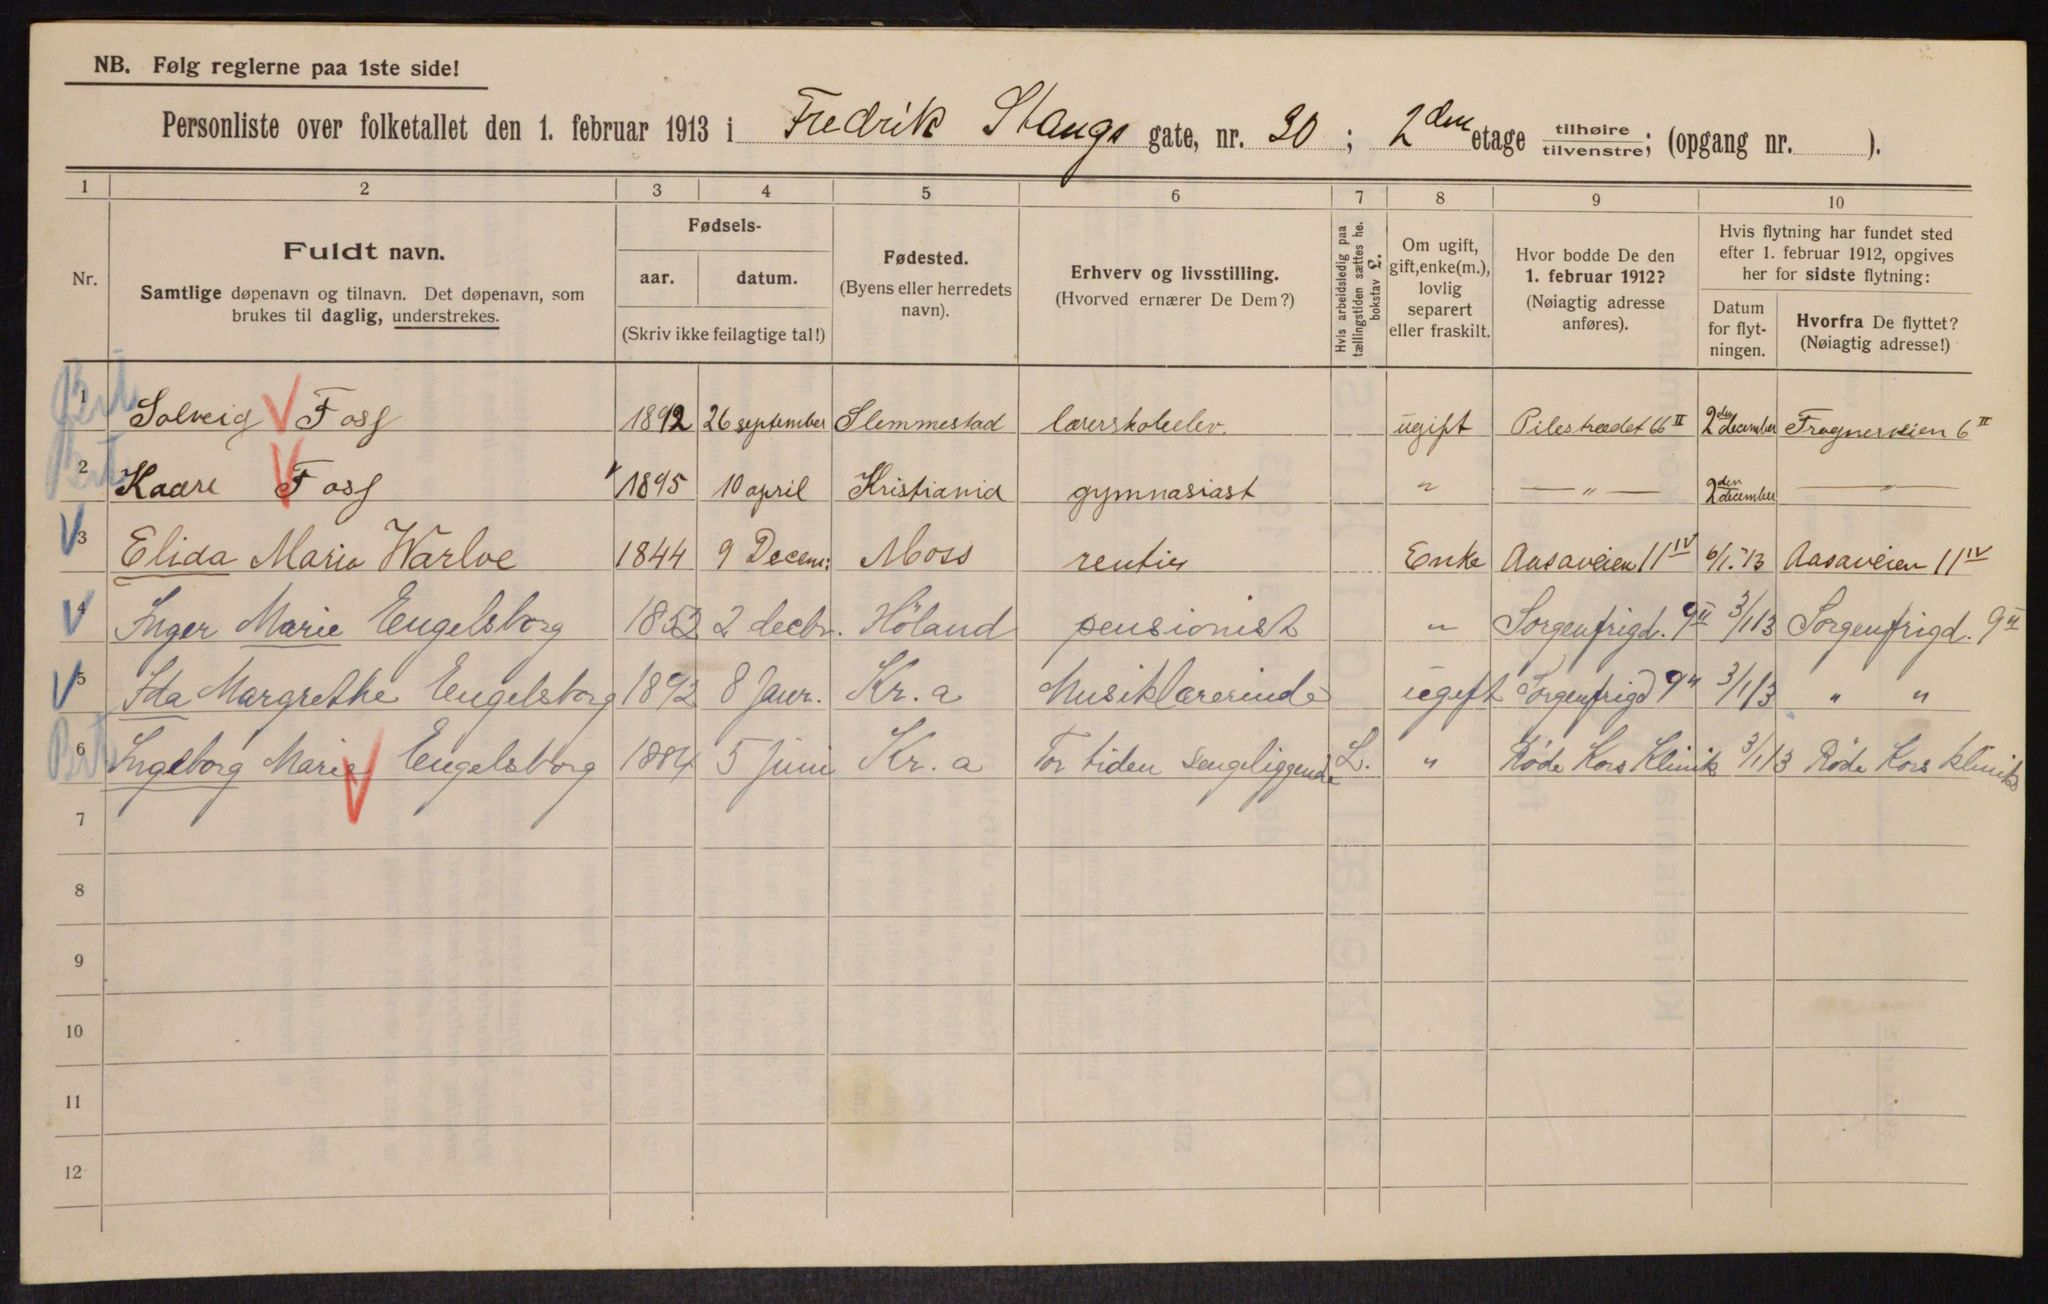 NB. Følg reglerne paa 1ste side!
Personliste over folketallet den 1. februar 1913 i Fredrik Stangs gate, nr. 30 ; 2den etage tilhøire tilvenstre; (opgang nr. ).
1 2 3 4 5 6 7 8 9 10
Nr.
Fuldt navn.
Samtlige døpenavn og tilnavn. Det døpenavn, som
brukes til daglig, understrekes.
Fødsels-
aar. datum.
(Skriv ikke feilagtige tal!)
Fødested.
(Byens eller herredets
navn).
Erhverv og livsstilling.
(Hvorved ernærer De Dem?)
Hvis arbeidsledig paa
tællingstiden sættes he.
bokstav L.
Om ugift,
gift, enke(m.),
lovlig
separert
eller fraskilt.
Hvor bodde De den
1. februar 1912?
(Nøiagtig adresse
anføres).
Hvis flytning har fundet sted
efter 1. februar 1912, opgives
her for sidste flytning:
Datum
for flyt-
ningen.
Hvorfra De flyttet?
(Nøiagtig adresse!)
1 Solveig Foss 1892 26 september Slemmestad lærerskoleelev. ugift Pilestrædet 66 II 2den december Frognerveien 6 II
2 Kaare Foss 1895 10 april Kristiania gymnasiast " — " — 2den december — " —
3 Elida Marie Warloe 1844 9 Decem: Moss rentier Enke Aasaveien 11 IV 6/1. 13 Aasaveien 11 IV
4 Inger Marie Engelsborg 1853 2 decbr. Höland pensionist " Sorgenfrigd. 9 II 3/1 13 Sorgenfrigd. 9 II
5 Ida Margrethe Engelsborg 1892 8 Janr. Kr. a Musiklærerinde ugift Sorgenfrigd 9 II 3/1 13 " "
6 Ingeborg Marie Engelsborg 1884 5 Juni Kr. a For tiden sengeliggende L. " Røde Kors Klinik 3/1 13 Røde Kors Klinik
7
8
9
10
11
12